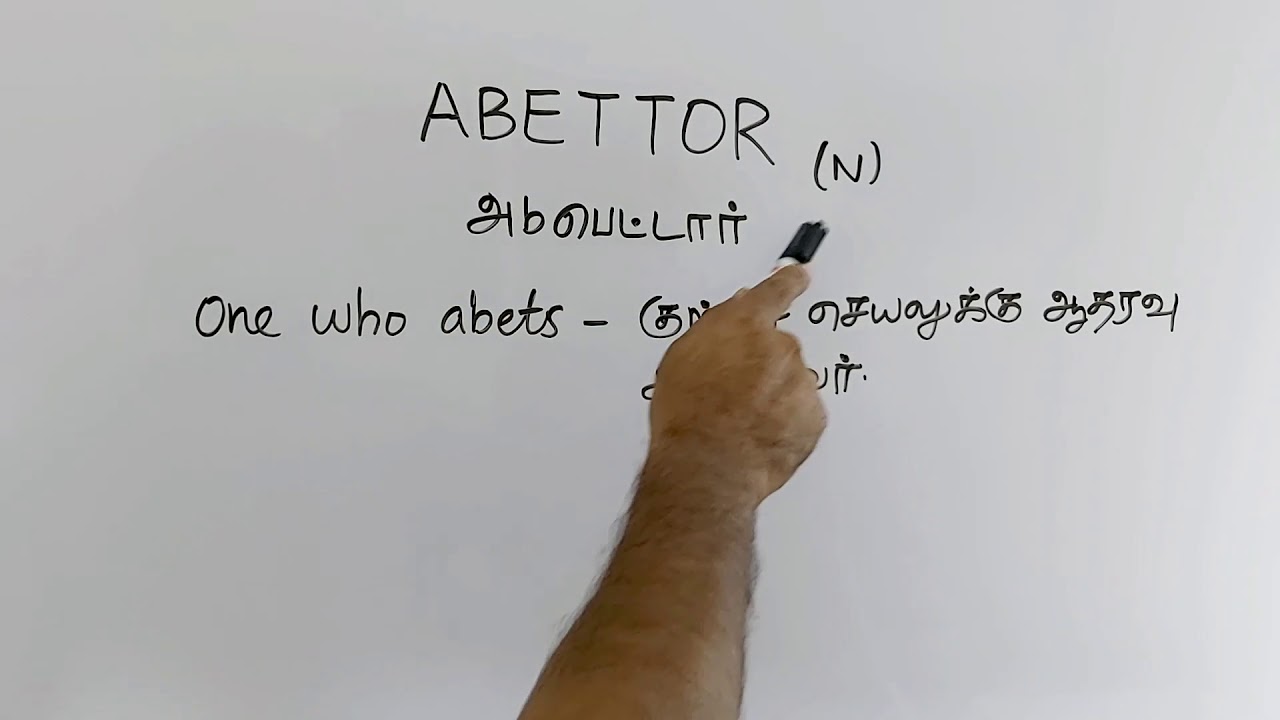 ABETTOR
(N)
அbபெட்டார்
One who abets - செயலுக்கு ஆதரவு